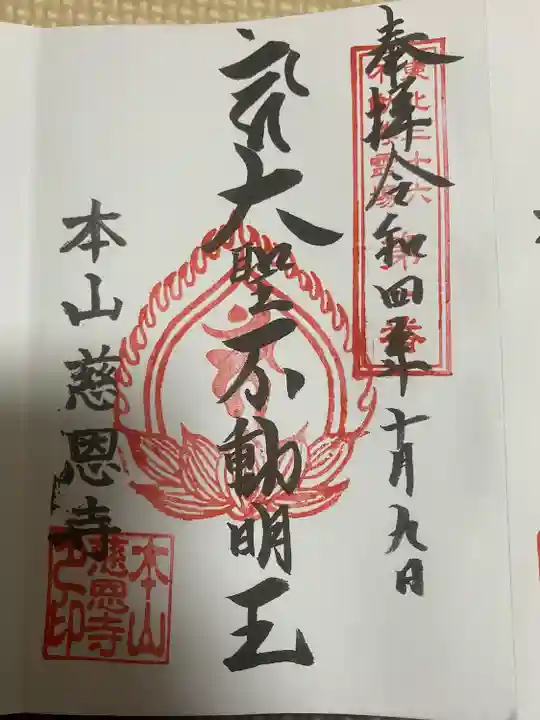 奉拝令和四年十月九日
東北三十六
不動尊霊場
第一番
大聖不動明王
本山慈恩寺
本山
慈恩寺
之印